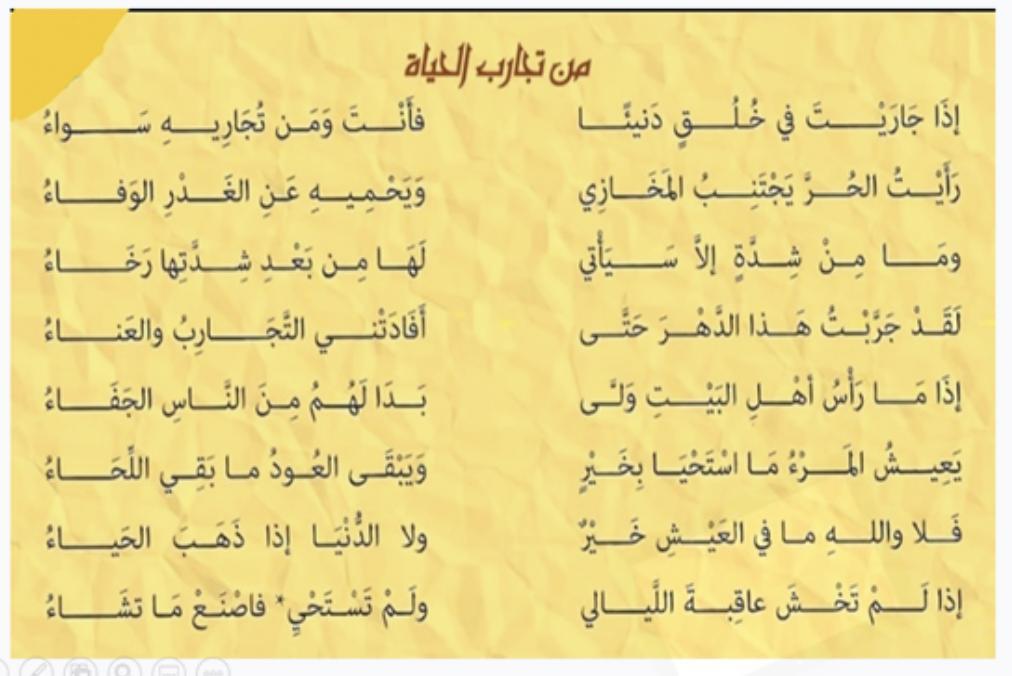 من تجارب الحياة
إِذَا جَارَيْـــــتَ في خُلُـــقٍ دَنيئًـــا فأَنْـــتَ وَمَـن تُجَارِيـــهِ سَــــواءُ
رَأَيْـــتُ الحُـــرَّ يَجْتَنِـــبُ المَخَـــازِي وَيَحْمِـيـــهِ عَـنِ الغَـــدْرِ الوَفـــاءُ
ومَـــا مِـنْ شِـــدَّةٍ إلاَّ سَـــيَأْتي لَهَـا مِـن بَعْـدِ شِـدَّتِها رَخَـــاءُ
لَقَـدْ جَرَّبْـتُ هَـذا الدَّهْـرَ حَتَّـى أَفَادَتْنـــي التَّجَـــارِبُ والعَنـــاءُ
إِذَا مَـــا رَأْسُ أَهْـــلِ البَيْـــتِ وَلَّـى بَـدَا لَهُـمُ مِـنَ النَّـاسِ الجَفَـــاءُ
يَعِيـــشُ المَـــرْءُ مَـا اسْتَحْيَـا بِخَـــيْرٍ وَيَبْقَـى العُـودُ مـا بَقِـي اللِّحَـــاءُ
فَـلا واللـــهِ مـا في العَيْـــشِ خَـــيْرٌ ولا الدُّنْيَـا إذا ذَهَـبَ الحَيـــاءُ
إذا لَـــمْ تَخْـــشَ عاقِبـــةَ اللَّيـــالي ولَـمْ تَسْـتَحْيِ* فاصْنَـعْ مَـا تشَـــاءُ